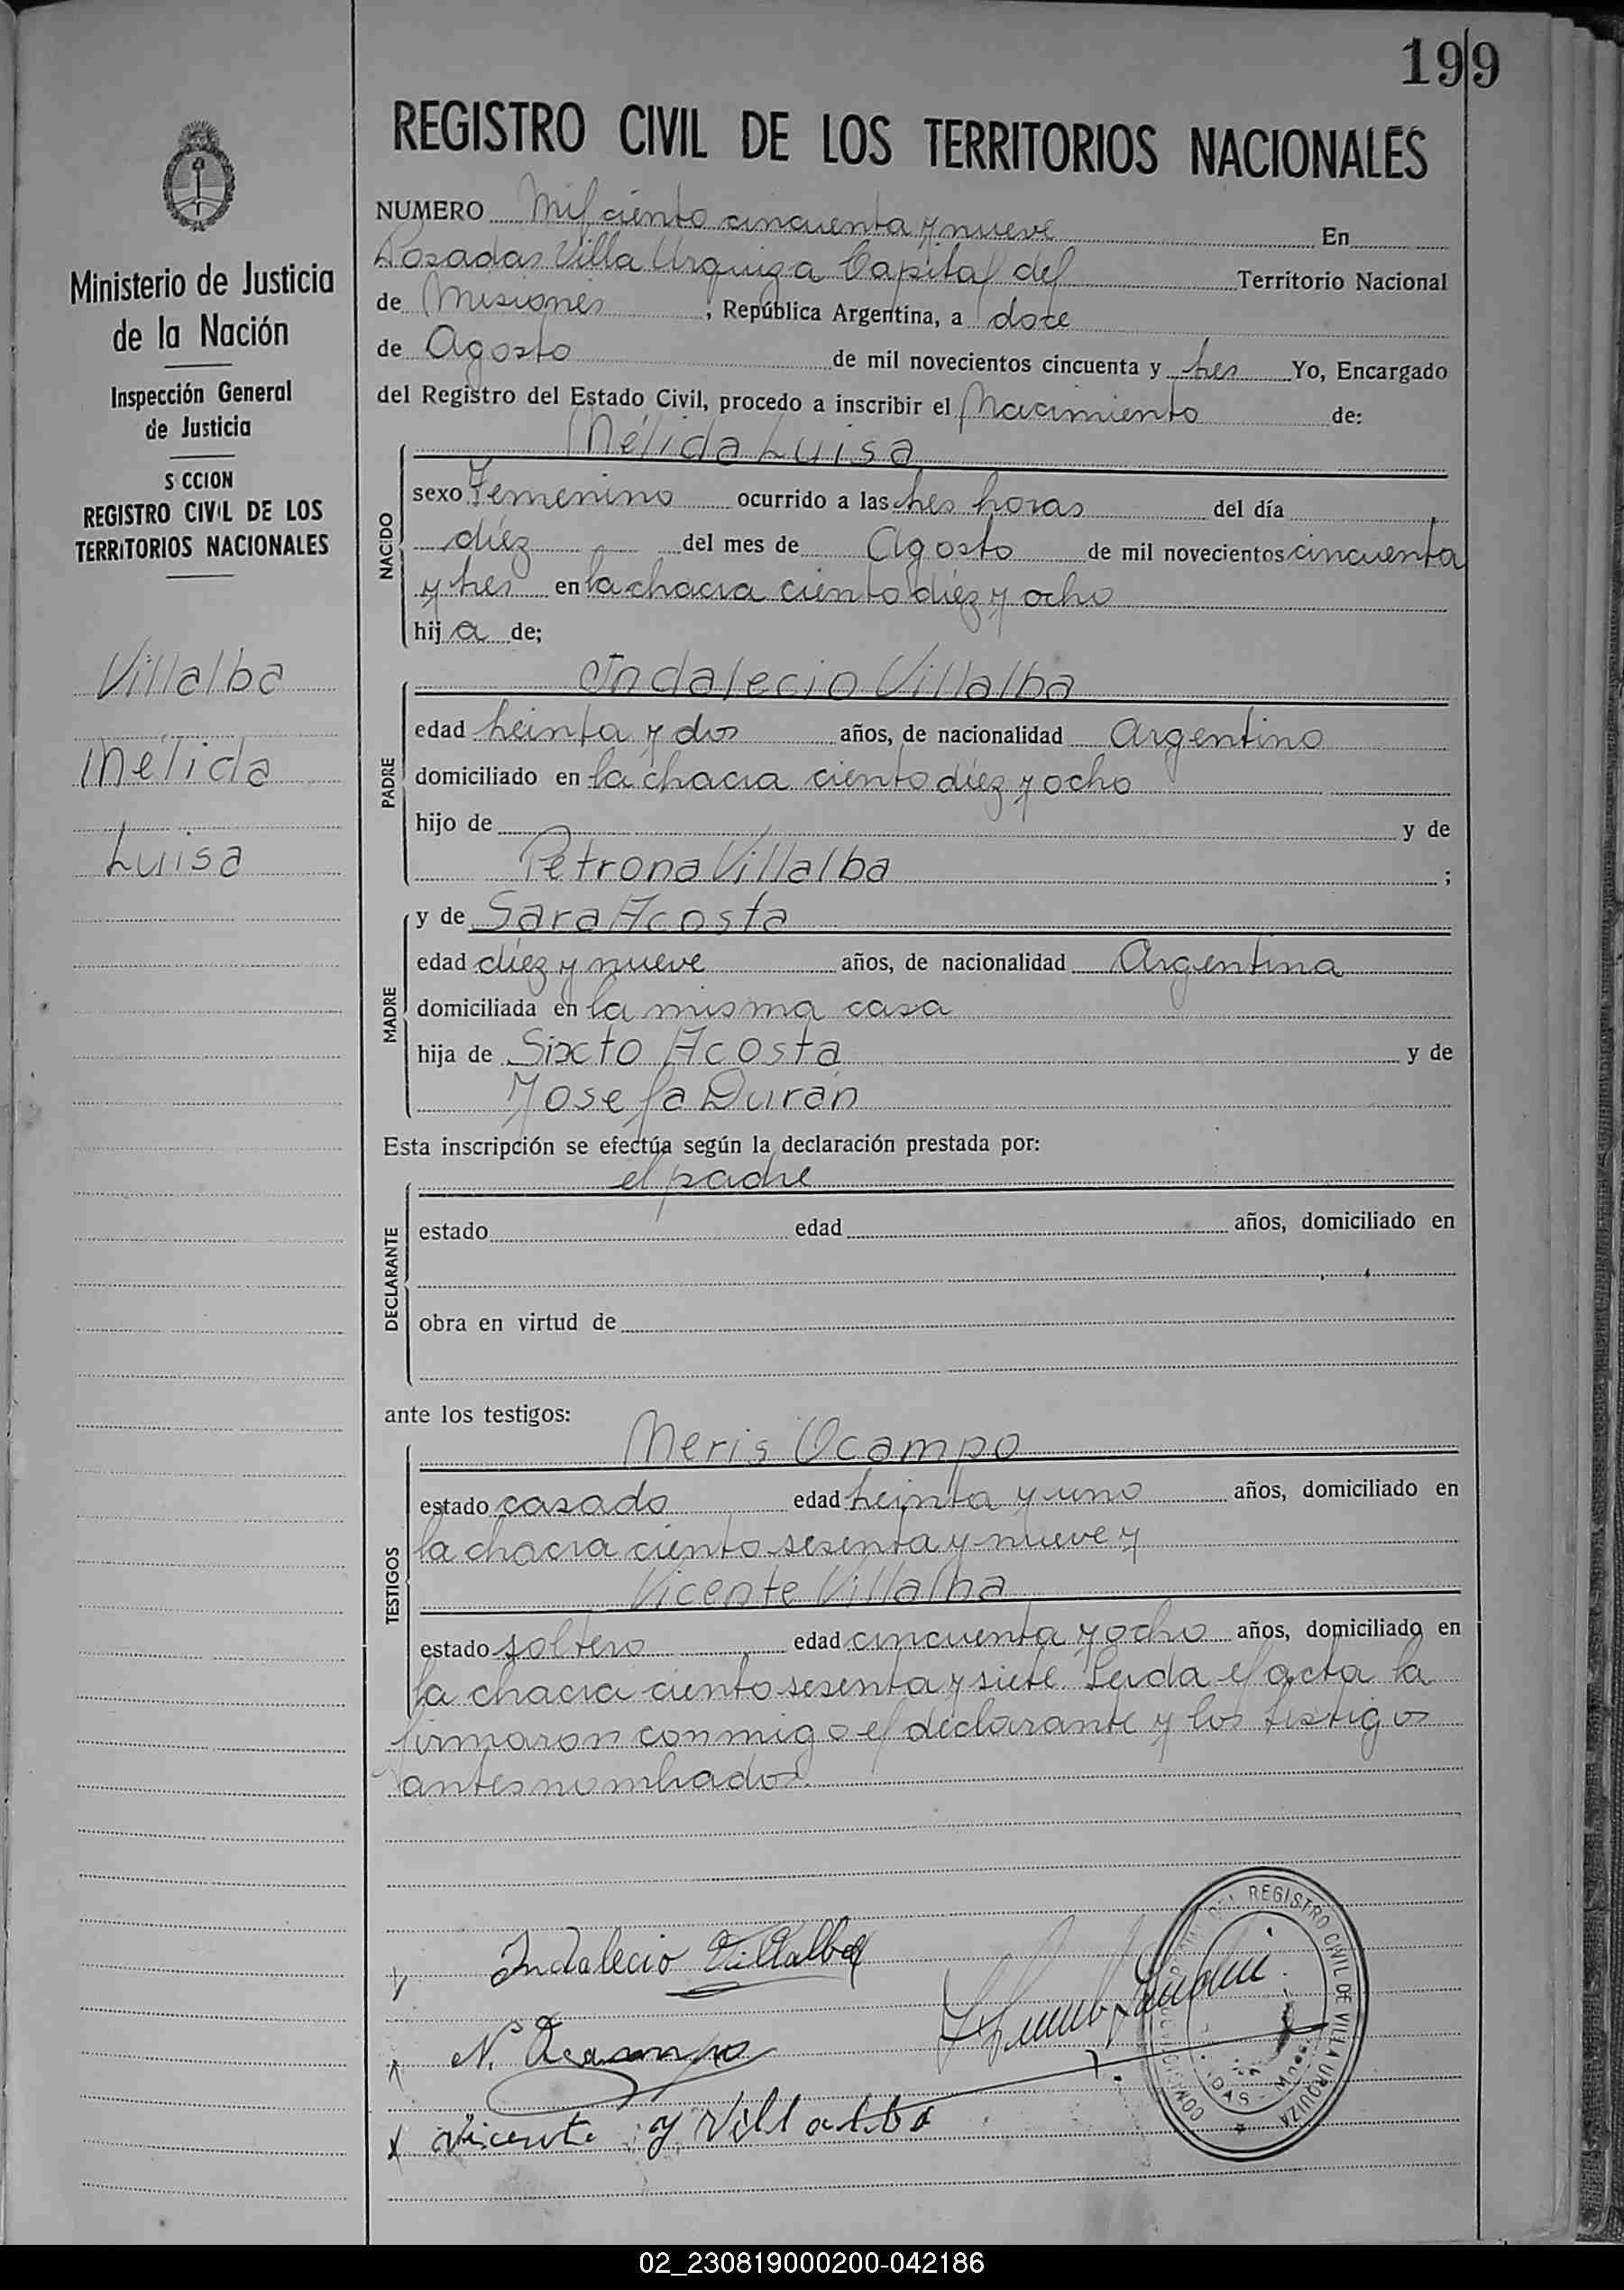 199
REGISTRO CIVIL DE LOS TERRITORIOS NACIONALES
Ministerio de Justicia
de la Nación
Inspección General
de Justicia
S CCION
REGISTRO CIVIL DE LOS
TERRITORIOS NACIONALES
Villalba
Nélida
Luisa
NUMERO Mil ciento cincuenta y nueve En
Posadas Villa Urquiza Capital del Territorio Nacional
de Misiones, República Argentina, a doce
de Agosto de mil novecientos cincuenta y tres Yo, Encargado
del Registro del Estado Civil, procedo a inscribir el Nacimiento de:
Nélida Luisa
NACIDO
sexo Femenino ocurrido a las tres horas del día
diéz del mes de Agosto de mil novecientos cincuenta
y tres en la chacra ciento diéz y ocho
hij a de;
Indalecio Villalba
PADRE
edad treinta y dos años, de nacionalidad Argentino
domiciliado en la chacra ciento diéz y ocho
hijo de y de
Petrona Villalba ;
MADRE
y de Sara Acosta
edad diéz y nueve años, de nacionalidad Argentina
domiciliada en la misma casa
hija de Sixto Acosta y de
Josefa Durán
Esta inscripción se efectúa según la declaración prestada por:
el padre
DECLARANTE
estado edad años, domiciliado en
obra en virtud de
ante los testigos:
Neris Ocampo
TESTIGOS
estado casado edad treinta y uno años, domiciliado en
la chacra ciento sesenta y nueve y
Vicente Villalba
estado soltero edad cincuenta y ocho años, domiciliado en
la chacra ciento sesenta y siete. Leida el acta la
firmaron conmigo el declarante y los testigos
antes nombrados.
Indalecio Villalba
N. Ocampo
Vicente y Villalba
REGISTRO CIVIL DE VILLA URQUIZA
02_230819000200-042186